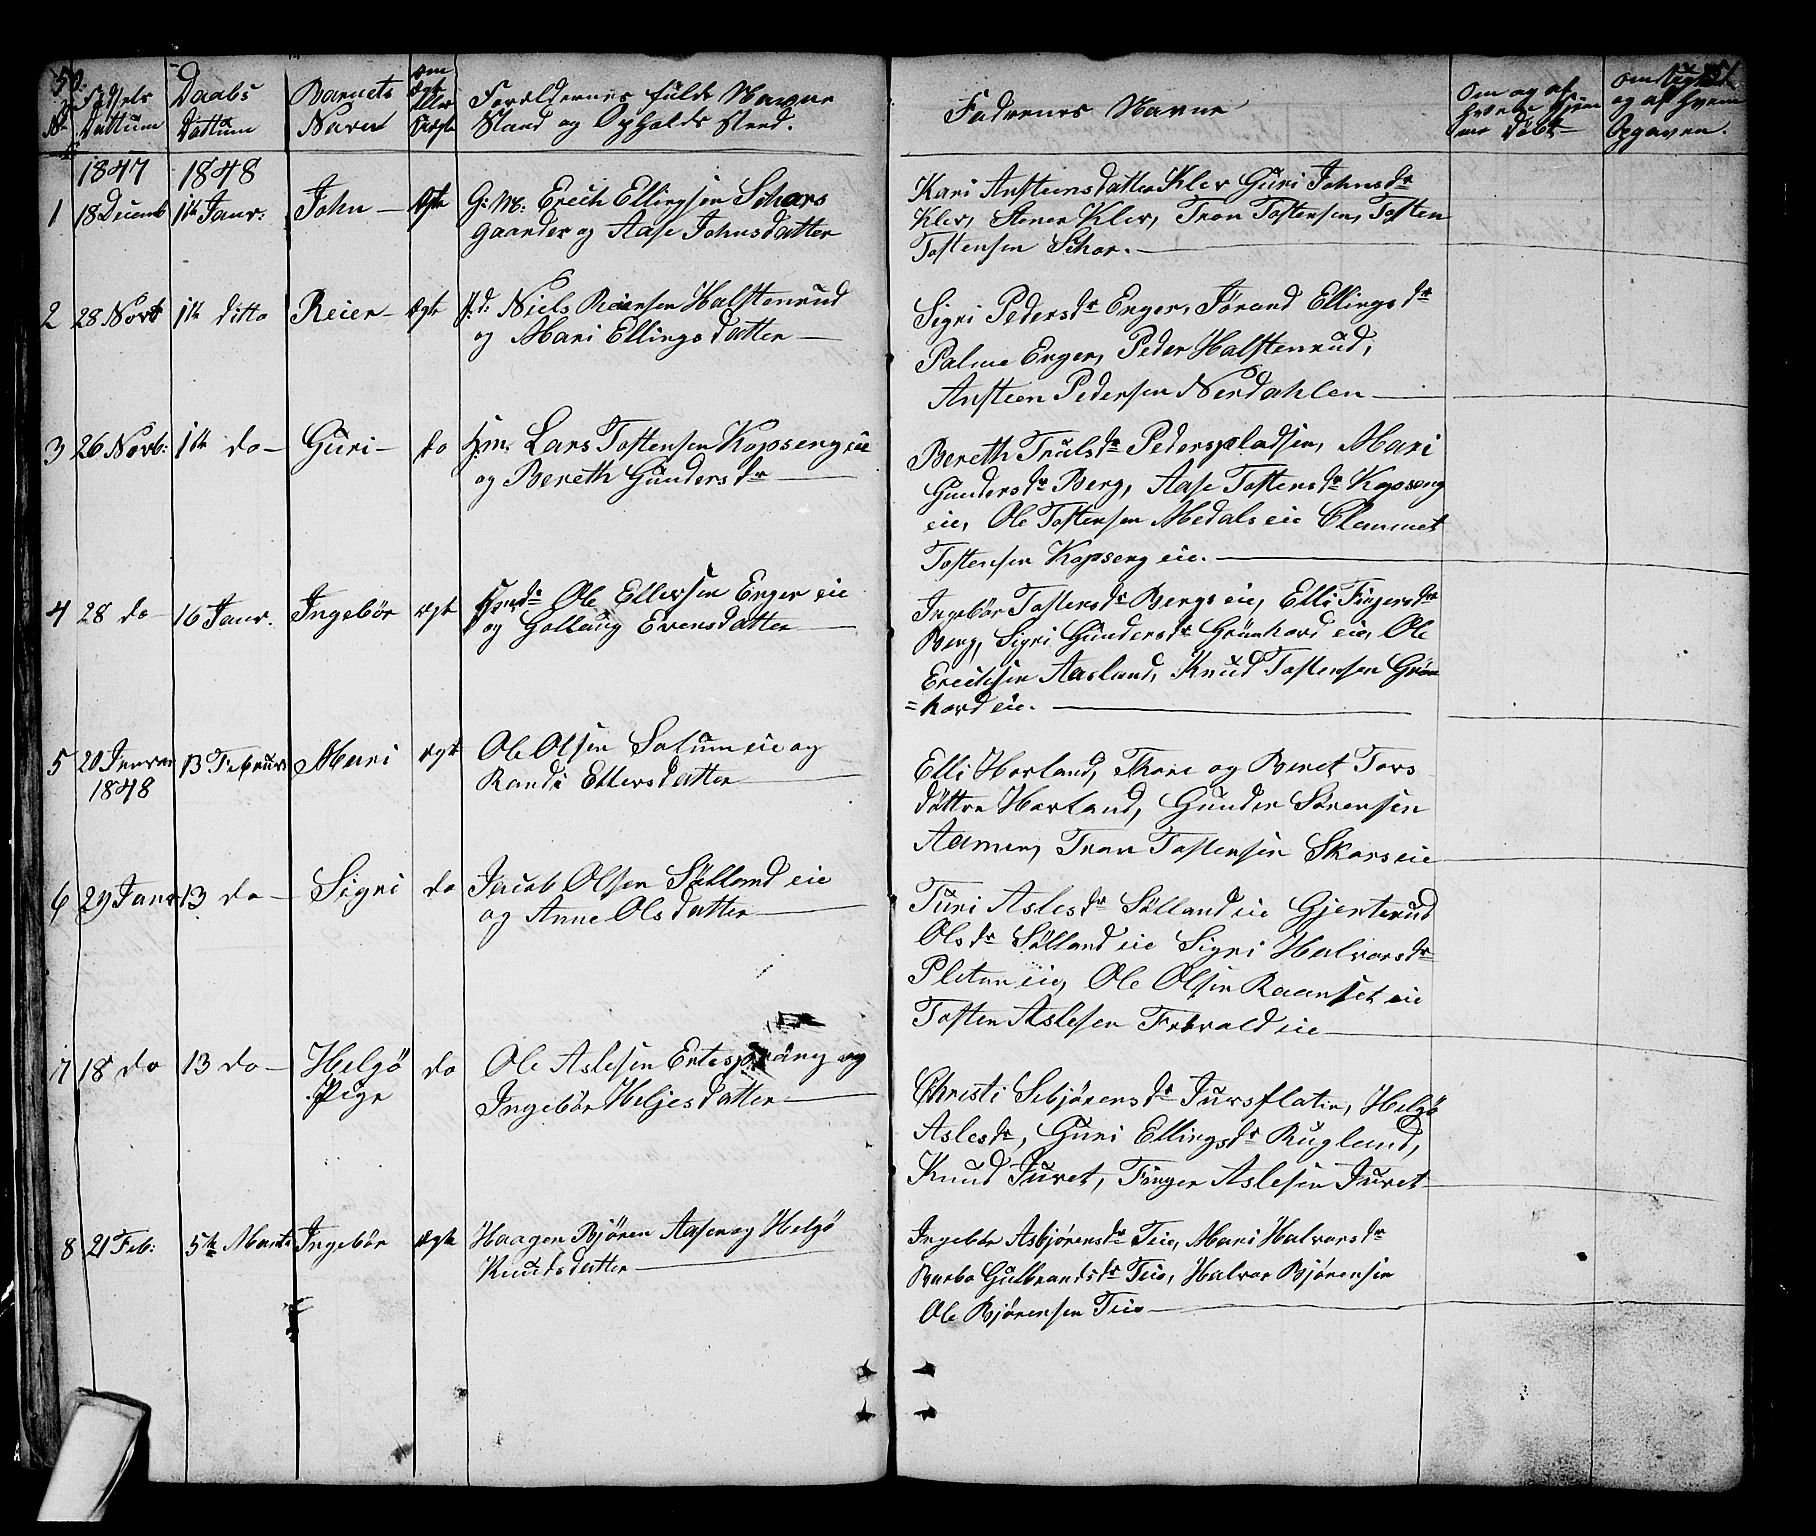 50.
No
Fødsels Dattum
Daabs Dattum
Barnets Navn
Om Ægte eller Uægte
Forældrenes fulde Navne Stand og Opholds sted.
Fadernes Navne
Om og af hvem hjemme Døbt
om
og af hvem Opgaven.
1847 1848
1 18 Decemb 1ste Janr: John Ægte G: M: Erich Ellingsen Skars
gaarder og Aase Johnsdatter
Kari Ansteensdatter Klev Guri Johnsdr
Klev, Stener Klev, Tron Tostensen, Tosten
Tostensen Schar.
2 28 Novb 1ste ditto Reier Ægte Niels Reiersen Halstenrud
og Mari Ellingsdatter
Sigri Pedersdr Enger, Jörand Ellingsdr
Palme Enger, Peder Halstenrud,
Ansteen Pedersen Nerdahlen
3 26 Novb: 1ste do Guri do Hm. Lars Tostensen Kopseng eie
og Bereth Gundersdr
Bereth Trulsdr Pederspladsen, Mari
Gundersdr Berg, Aase Tostensdr Kopseng
eie, Ole Tostensen Medals eie Clemmet
Tostensen Kopseng eie.
4 28 do 16 Janr. Ingebör Ægte Ole Ellefsen Enger eie
og Gollaug Evensdatter
Ingebör Tostensdr Bergs eie, Elli Fingersdr
Berg, Sigri Gundersdr Grönhovd eie, Ole
Erichsen Aasland, Knud Tostensen Grön
=hovd eie.
5 20 Januar 13 Februar Mari Ægte Ole Olsen Solum eie og
1848 Randi Ellersdatter
Elli Horland, Thore og Beret Tors
döttre Horland, Gunder Sörensen
Aamen, Tron Tostensen Skars eie
6 29 Janr 13 do Sigri do Jacob Olsen Sölland eie
og Anne Olsdatter
Turi Aslesdr Sölland eie Gjertrud
Olsdr Sölland eie Sigri Halvorsdr
Pleten eie, Ole Olsen Raanset eie
Tosten Aslesen eie
7 18 do 13 do Helgö do Ole Aslesen Ertesprang og
Pige Ingebör Heljesdatter
Christi Sebjörensdr Juvsflaten, Helgö
Aslesdr, Guri Ellingsdr Rugland,
Knud Juvet, Finger Aslesen Juvet
8 21 Feb: 5te Marts Ingebör Ægte Haagen Björen Aasen og Helgö
Knudsdatter
Ingebör Asbjörensdr Teie, Mari Halvorsdr
Barbo Gulbrandsdr Teie, Halvor Björensen
Ole Björensen Teie